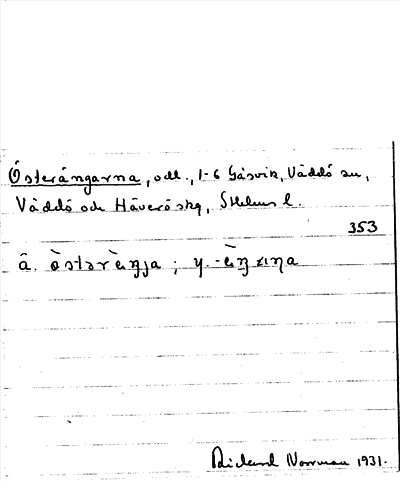 Österängarna, odl., 1-6 Gåsvik, Väddö sn,
Väddö och Häverö skg, Sthlms l.
353
ä. ò̈stərὲŋja ; y. -ὲŋɐɪŋa
Rickard Norrman 1931.